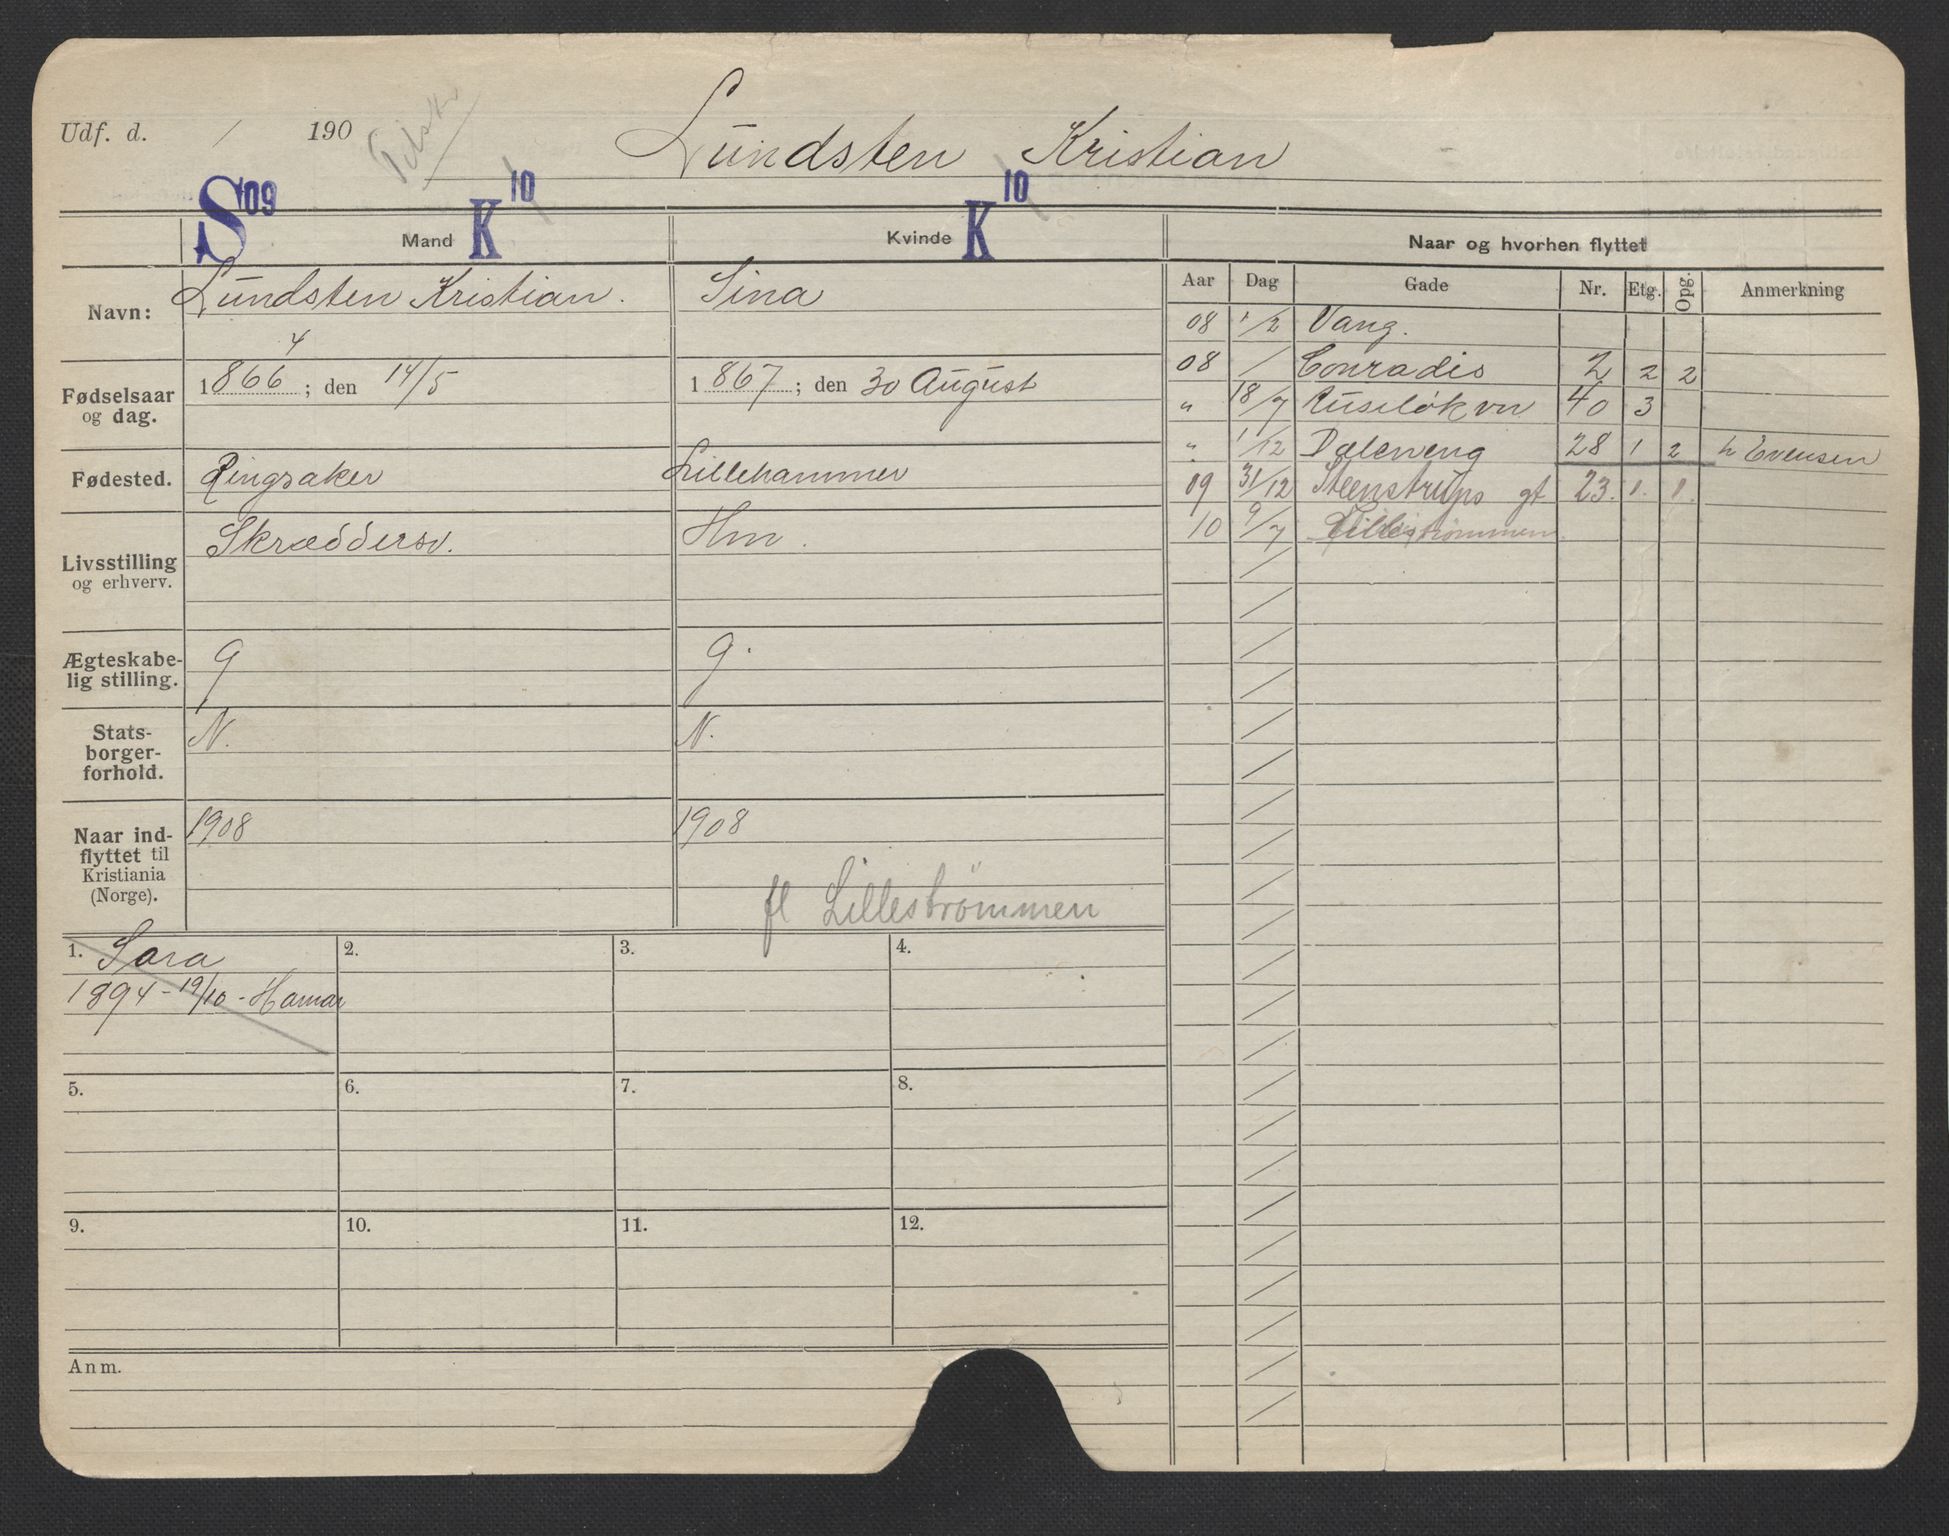 Udf. d. / 190
Lundsten Kristian
S 09 K 10 K 10
Mand Kvinde Naar og hvorhen flyttet
Navn: Lundsten Kristian. Sina
Fødselsaar og dag. 1866 4; den 14/5 1867; den 30 August
Fødested. Ringsaker Lillehammer
Livsstilling og erhverv. Skræddersv. Hm.
Ægteskabe-
lig stilling. g g.
Stats-
borger-
forhold. N. N.
Naar ind-
flyttet til
Kristiania
(Norge). 1908 1908
fl Lillestrømmen
Aar Dag Gade Nr. Etg. Opg. Anmerkning
08 1/2 Vang.
08 / Conradis 2 2 2
" 18/7 Ruseløkvn 40 3
" 1/12 Dæleneng 28 1 2 h Evensen
09 31/12 Steenstrups gt 23. 1. 1.
10 9/7 Lillestrømmen
1. Sara
1894 - 19/10 - Hamar
2.
3.
4.
5.
6.
7.
8.
9.
10.
11.
12.
Anm.